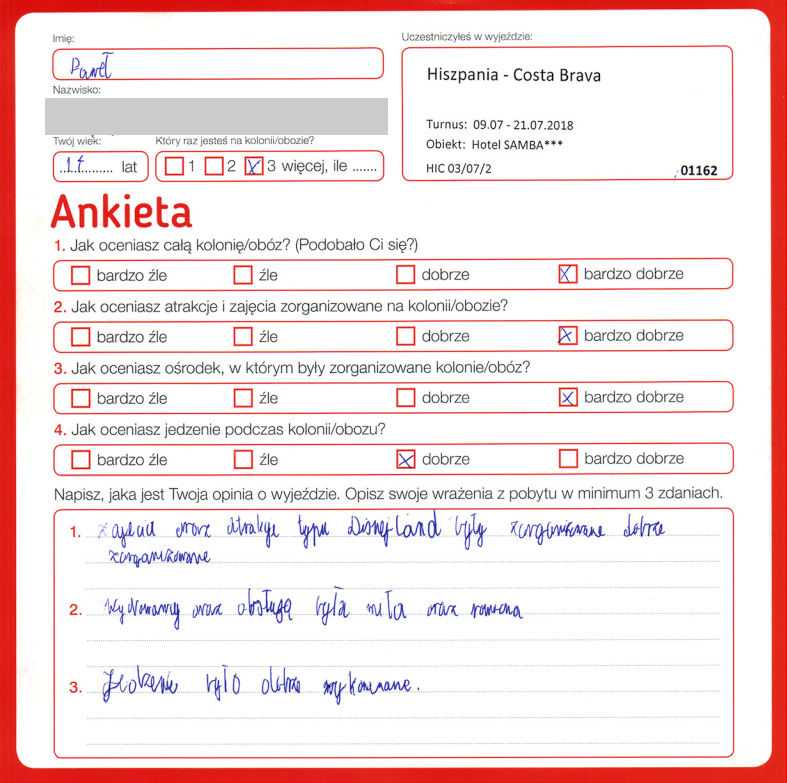 Imię:
Paweł
Nazwisko:
Twój wiek:
lat
Który raz jesteś na kolonii/obozie?
1 2 3 więcej, ile .......
Uczestniczyłeś w wyjeździe:
Hiszpania - Costa Brava
Turnus: 09.07 - 21.07.2018
Obiekt: Hotel SAMBA***
HIC 03/07/2
01162
Ankieta
1. Jak oceniasz całą kolonię/obóz? (Podobało Ci się?)
bardzo źle źle dobrze bardzo dobrze
2. Jak oceniasz atrakcje i zajęcia zorganizowane na kolonii/obozie?
bardzo źle źle dobrze bardzo dobrze
3. Jak oceniasz ośrodek, w którym były zorganizowane kolonie/obóz?
bardzo źle źle dobrze bardzo dobrze
4. Jak oceniasz jedzenie podczas kolonii/obozu?
bardzo źle źle dobrze bardzo dobrze
Napisz, jaka jest Twoja opinia o wyjeździe. Opisz swoje wrażenia z pobytu w minimum 3 zdaniach.
1. oraz atrakcje typu Disnejland były zorganizowane dobrze
zorganizowane
2. oraz obsługa była miła oraz
3. Jedzenie było dobrze wykonane.